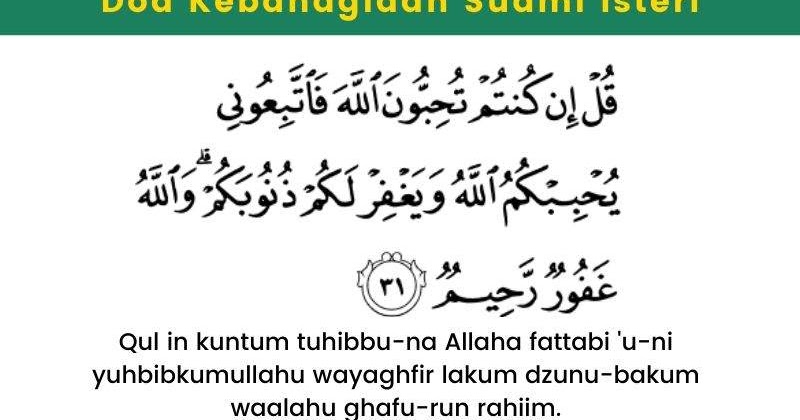 Doa Kebahagiaan Suami Isteri
قُلْ إِن كُنتُمْ تُحِبُّونَ ٱللَّهَ فَٱتَّبِعُونِي
يُحْبِبْكُمُ ٱللَّهُ وَيَغْفِرْ لَكُمْ ذُنُوبَكُمْ ۗ وَٱللَّهُ
غَفُورٌ رَّحِيمٌ ٣١
Qul in kuntum tuhibbu-na Allaha fattabi 'u-ni
yuhbibkumullahu wayaghfir lakum dzunu-bakum
waalahu ghafu-run rahiim.